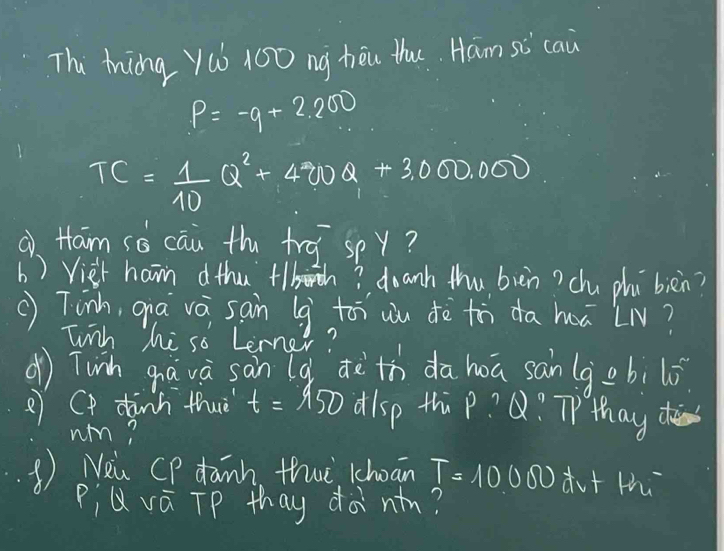 Thị trường Y có 100 ng tiêu thụ. Hàm số cầu
P = -q + 2.200
TC = 1/10 Q² + 400Q + 3.000.000
a) Hàm số cầu thị trg sp Y?
b) Viết hàm dthu t/bình? doanh thu biên? chi phí biên?
c) Tính giá và sản lg tối ưu để tối đa hoá LN?
Tính hệ số Lerner?
d) Tính giá và sản lg để tối đa hoá sản lg o bị lỗ
e) CP đánh thuế t = 150 đ/sp thì P? Q? TP thay đổi
ntn?
f) Nếu CP đánh thuế khoán T = 10.000 đvt thì
P, Q và TP thay đổi ntn?